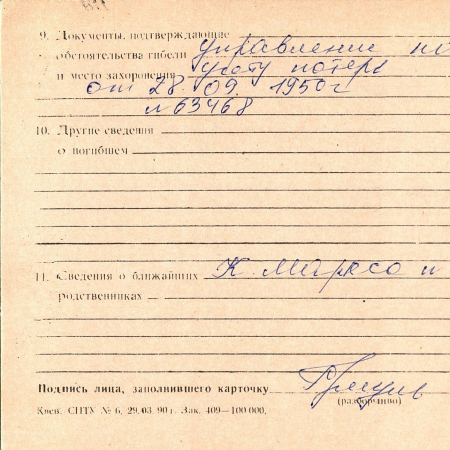 9. Документы, подтверждающие
обстоятельства гибели управление по
и место захоронения учету потерь
от 28.09.1950г
№ 63468
10. Другие сведения
о погибшем
11. Сведения о ближайших К. Маркса и
родственниках
Подпись лица, заполнившего карточку
(разборчиво)
Киев. СПТУ № 6, 29.03.90 г. Зак. 409—100 000.